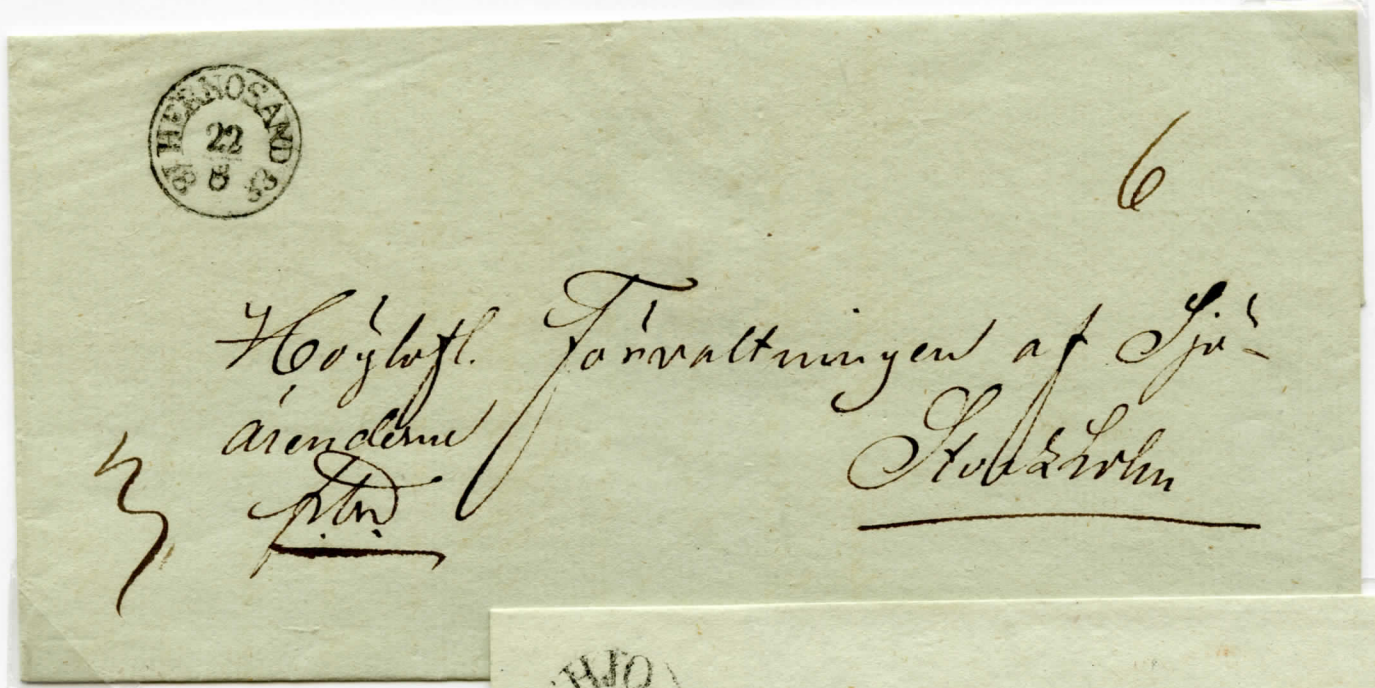 HERNOSAND
22
8
6
Höglofl. Förvaltningen af Sjö-
ärenderne
Stockholm
3
HJO